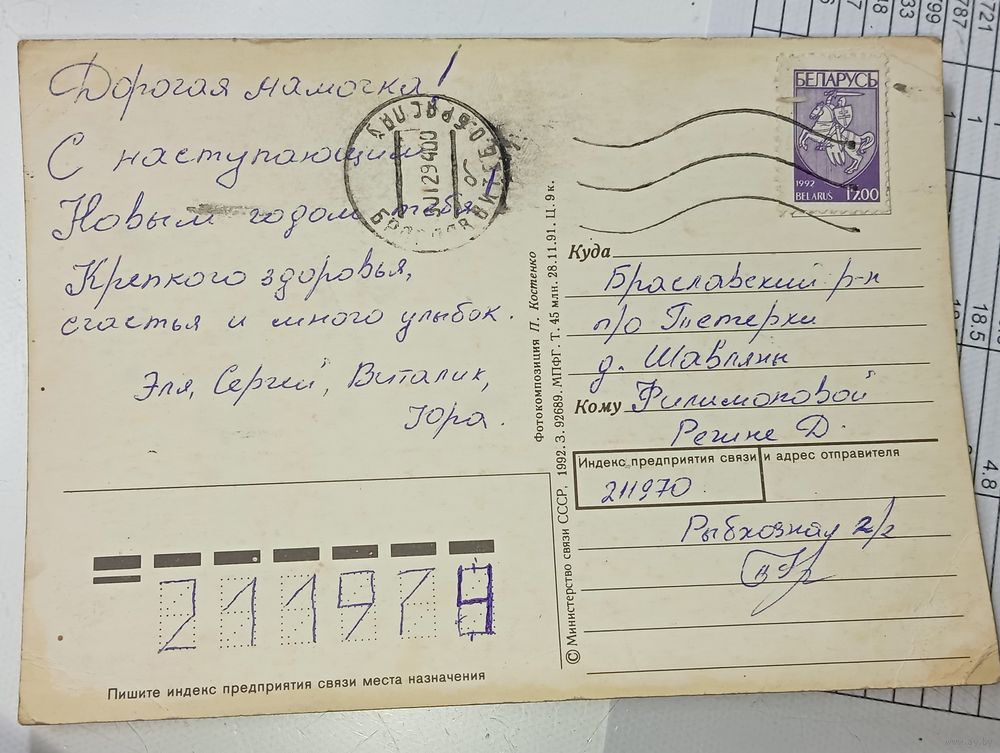 Дорогая мамочка!
С наступающим
Новым годом тебя!
Крепкого здоровья,
счастья и много улыбок.
Эля, Сергей, Виталик,
Юра.
БЕЛАРУСЬ
1992
BELARUS
Куда
Браславский р-н
п/о Тетерки
д. Шавляны
Кому Филимоновой
Регине Д.
Индекс предприятия связи и адрес отправителя
211970
Рыбхозная 2/2
Пишите индекс предприятия связи места назначения
© Министерство связи СССР, 1992. З. 92689. МПФГ. Т. 45 млн. 28.11.91. Ц. 9 к.
Фотокомпозиция П. Костенко
721
787
18.5
4.8
www.ay.by